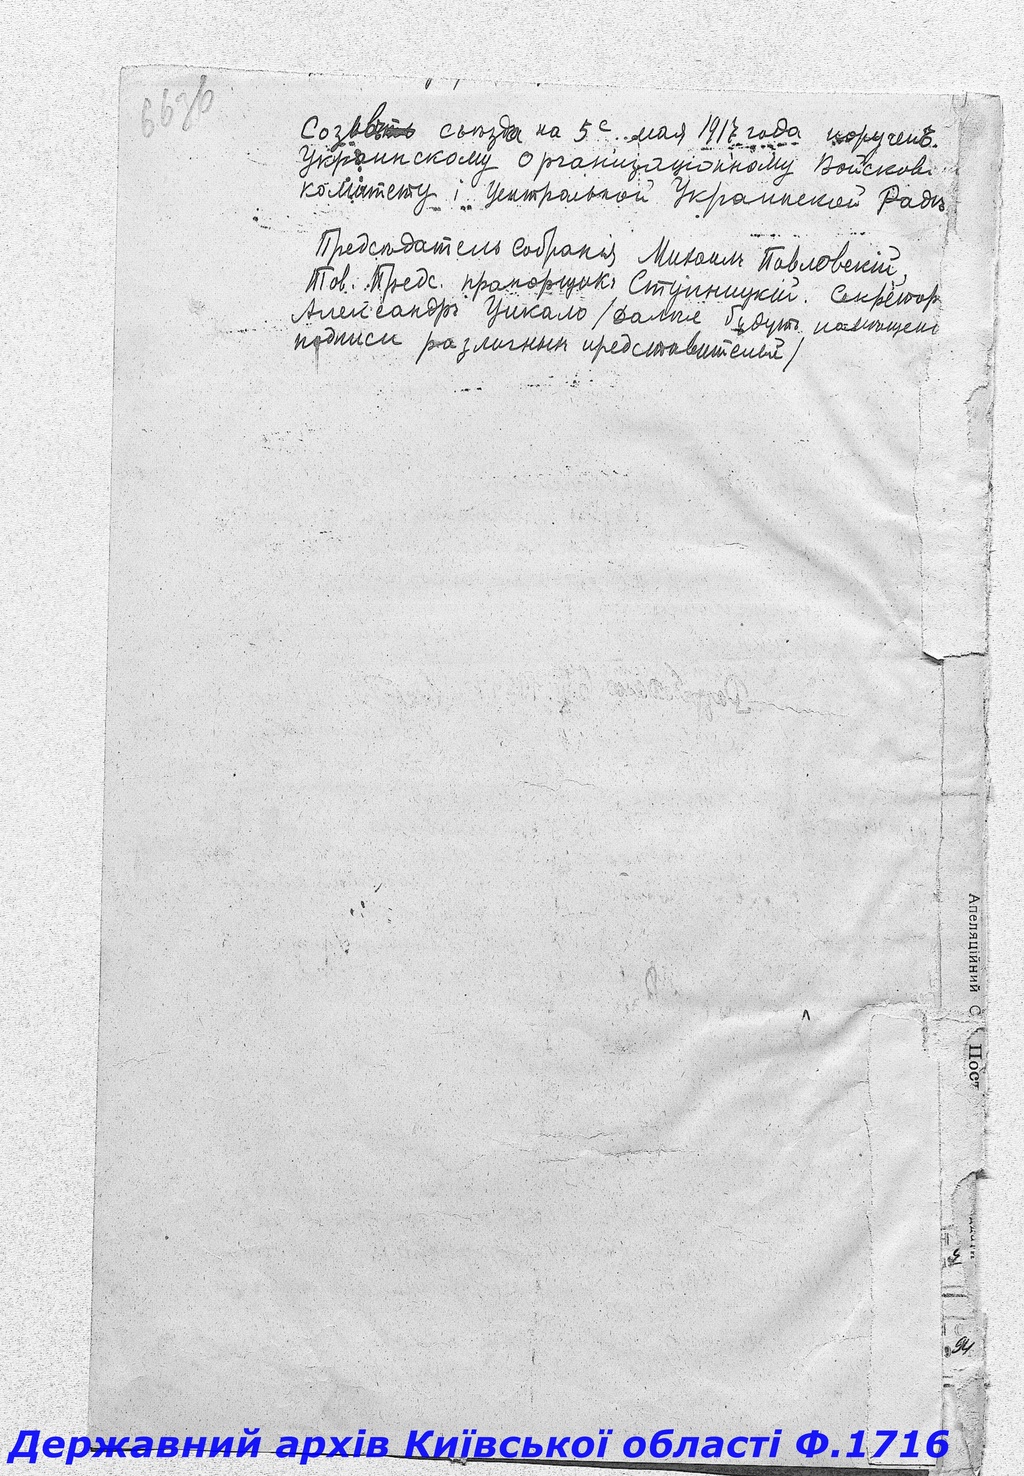 663б
Созывъ съезда на 5с мая 1917 года поручен.
Украинскому Организационному Войсков.
комитету і Центральной Украинской Радѣ
Предсѣдатель собранія Михаилъ Павловскій,
Тов. Предс. прапорщикъ Ступницкій. Секретар
Александръ Чикало /далѣе будутъ помѣщени
подписи различныхъ представителей/
Апеляційний С
Пост
94
Державний архів Київської області Ф.1716